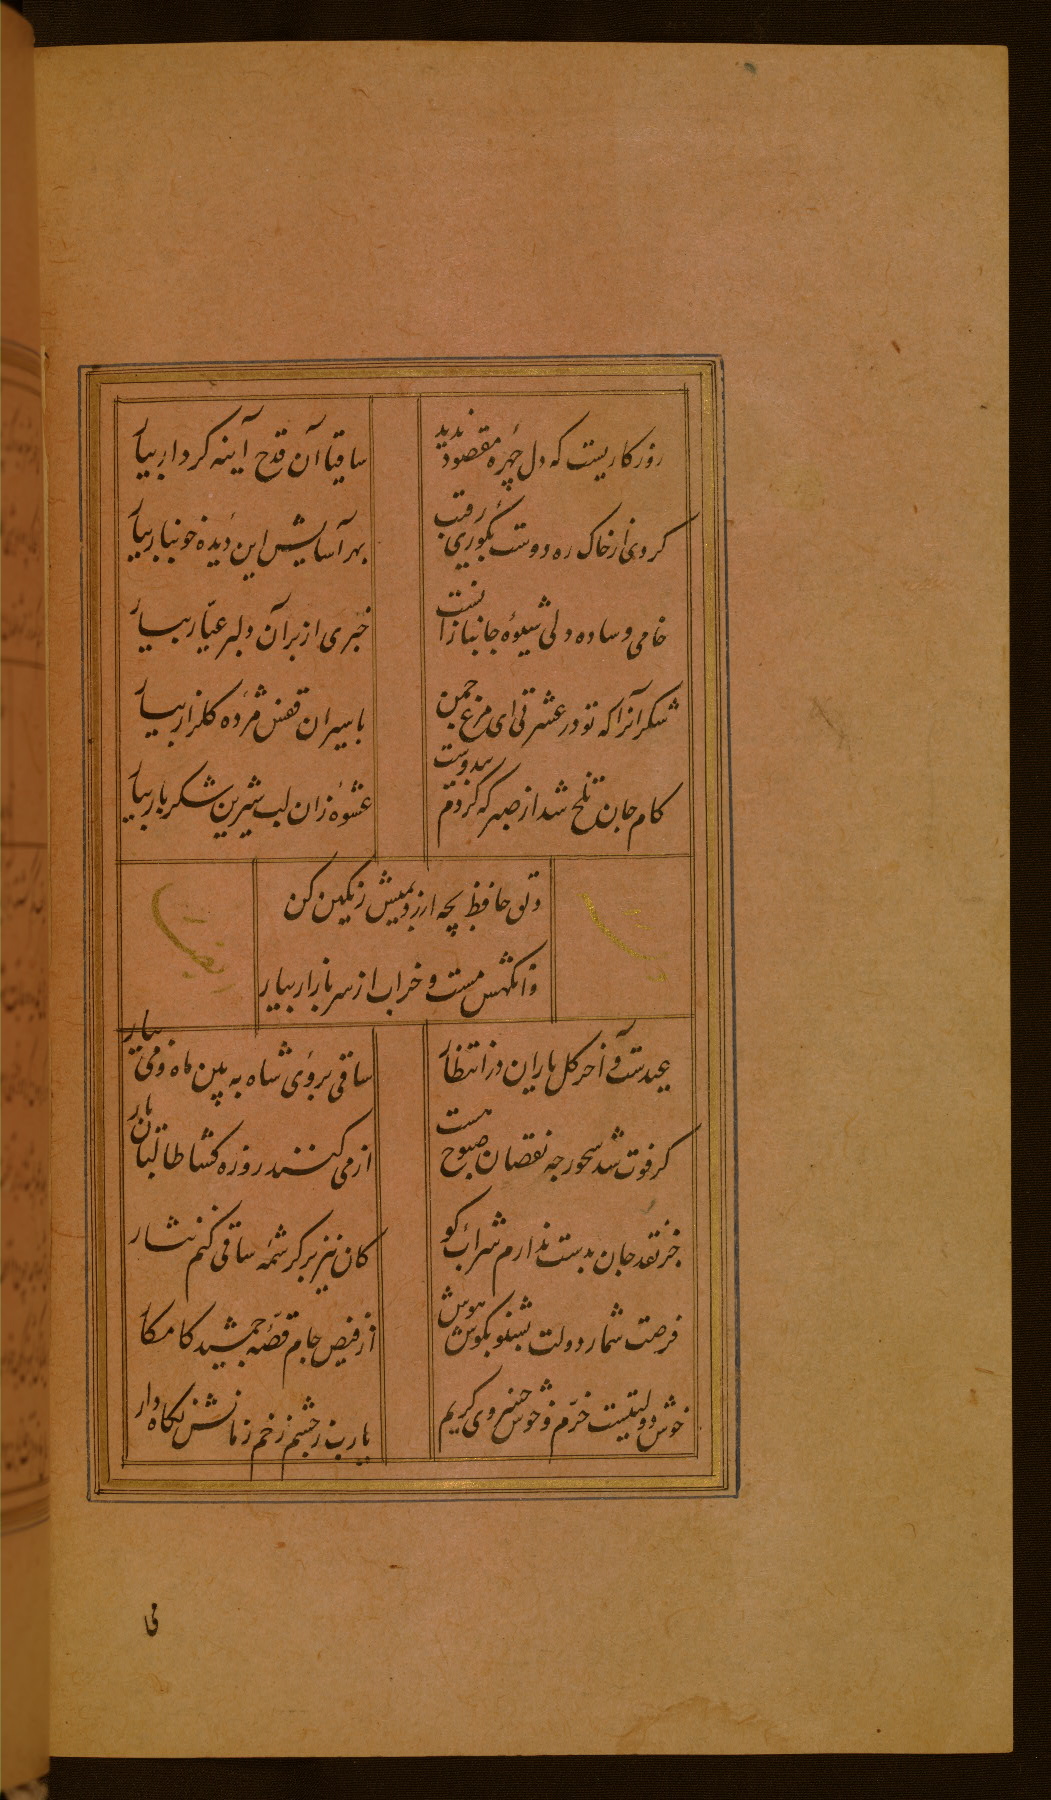 روزکاریست که دل چهره مقصود ندید
ساقیا آن قدح آینه کردار بیار
کردی از خاک ره دوست بکوری رقیب
بهر آسایش این دیده خونبار بیار
خامی و ساده دلی شیوه جانبازان نست
خبری از بر آن دلبر عیّار بیار
شکر آنرا که تو در عشرتی ای مرغ چمن
باسیران قفس مژده کلزار بیار
کام جان تلخ شد از صبر که کردم بیدوست
عشوه زان لب شیرین شکربار بیار
دلق حافظ بچه ارزد بمیش رنکین کن
وانکهش مست و خراب از سر بازار بیار
عیدست و آخر کل یاران در انتظار
ساقی بروی شاه به بین ماه و می بیار
کر فوت شد سحور چه نقصان صبوح هست
از می کنند روزه کشا طالبان یار
جز نقد جان بدست ندارم شراب کو
کان نیز بر کرشمه ساقی کنم نثار
فرصت شمار دولت بشنو بکوش هوش
از فیض جام قصّه جمشید کامکار
خوش دولتیست خرّم و خوش خسروی کریم
یا رب ز چشم زخم زمانش نکاه دار
می